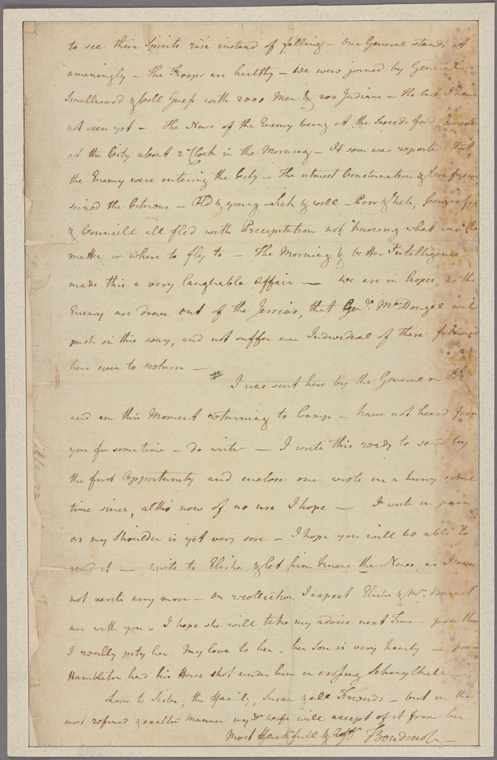 to see their Spirits rise instead of falling — Our General stands it
amazingly — the Troops are healthy — we were joined by General
Smallwood & Coll Guess with 2000 Men & 200 Indians — the last I have
not seen yet — The News of the Enemy being at the Sweeds ford, arrived
at the City about 2 Clock in the Morning — It soon was reported that
the Enemy were entering the City — The utmost Consternation & Confusion
seized the Citizens — Old & young Sick & well — Poor & rich, Congress
& Councill all fled with Precipitation not knowing what was the
matter or where to fly to — The Morning & better Intelligence
made this a very laughable Affair — We are in hopes, as the
Enemy are drove out of the Jersies, that Genl. McDougal will
push on this way, and not suffer an Individual of these
here ever to return —
# I was sent here by the General on
and am this Moment returning to Camp — have not heard from
you for some time — do write — I write this ready to send by
the first Opportunity and enclose one wrote in a hurry some
time since, altho now of no use I hope — I write in pain
as my Shoulder is yet very sore — I hope you will be able to
read it — write to Elisha & let him know the News, as I can
not write any more — on recollection I expect Elisha & Mrs.
are with you — I hope she will take my advice next Time — poor thing
I really pity her. My Love to her — her son is very hearty — poor
Hambleton had his Horse shot under him in crossing Schuylkill —
Love to Sister, the Family, Susan & all Friends — but in the
most refined & exalted Manner my dr. wife will accept of it from her
Most Faithfull & Afft. Boudinot